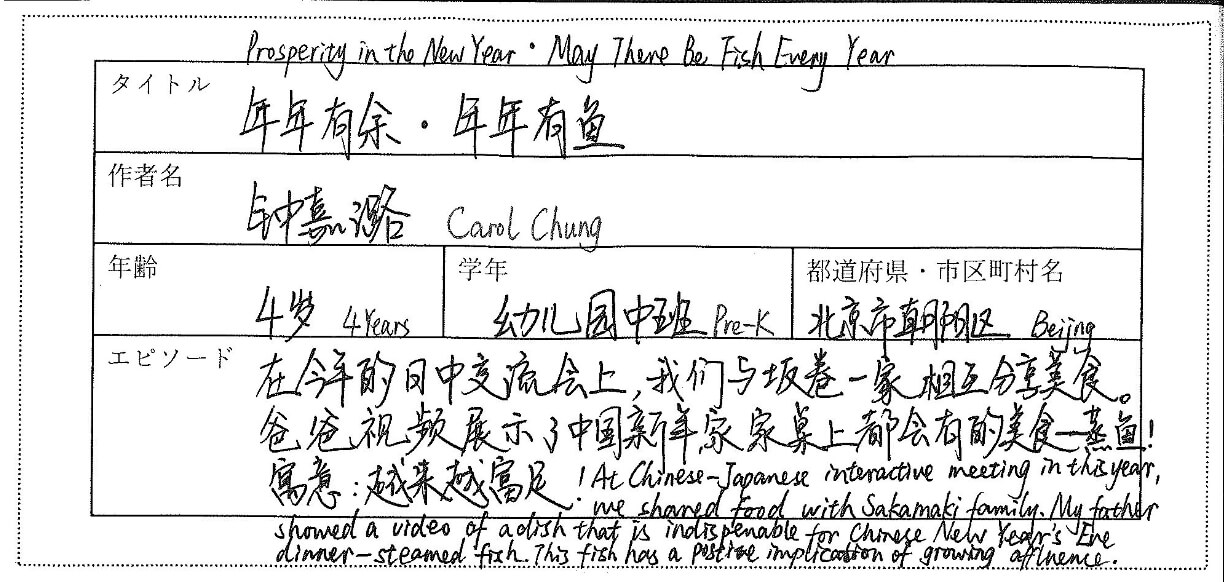 Prosperity in the New Year・May There Be Fish Every Year
タイトル
年年有余・年年有鱼
作者名
钟嘉潞 Carol Chung
年齢 学年 都道府県・市区町村名
4岁 4Years 幼儿园中班 Pre-K 北京市朝阳区 Beijing
エピソード
在今年的日中交流会上,我们与坂卷一家相互分享美食。
爸爸视频展示了中国新年家家桌上都会有的美食—蒸鱼!
寓意:越来越富足! At Chinese-Japanese interactive meeting in this year,
we shared food with Sakamaki family. My father
showed a video of a dish that is indispenable for Chinese New Year's Eve
dinner-steamed fish. This fish has a postive implication of growing affluence.